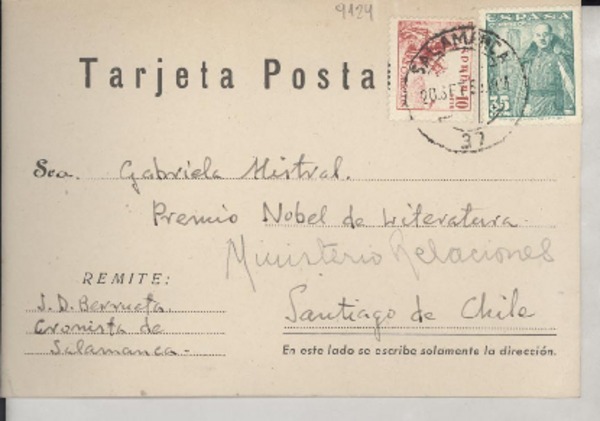 9124
Tarjeta Posta
ESPAÑA
35
10
SALAMANCA
20 SET
37
Sra. Gabriela Mistral.
Premio Nobel de Literatura.
Ministerio Relaciones
Santiago de Chile
REMITE:
J. D. Berrueta.
Cronista de
Salamanca.-
En este lado se escribe solamente la dirección.